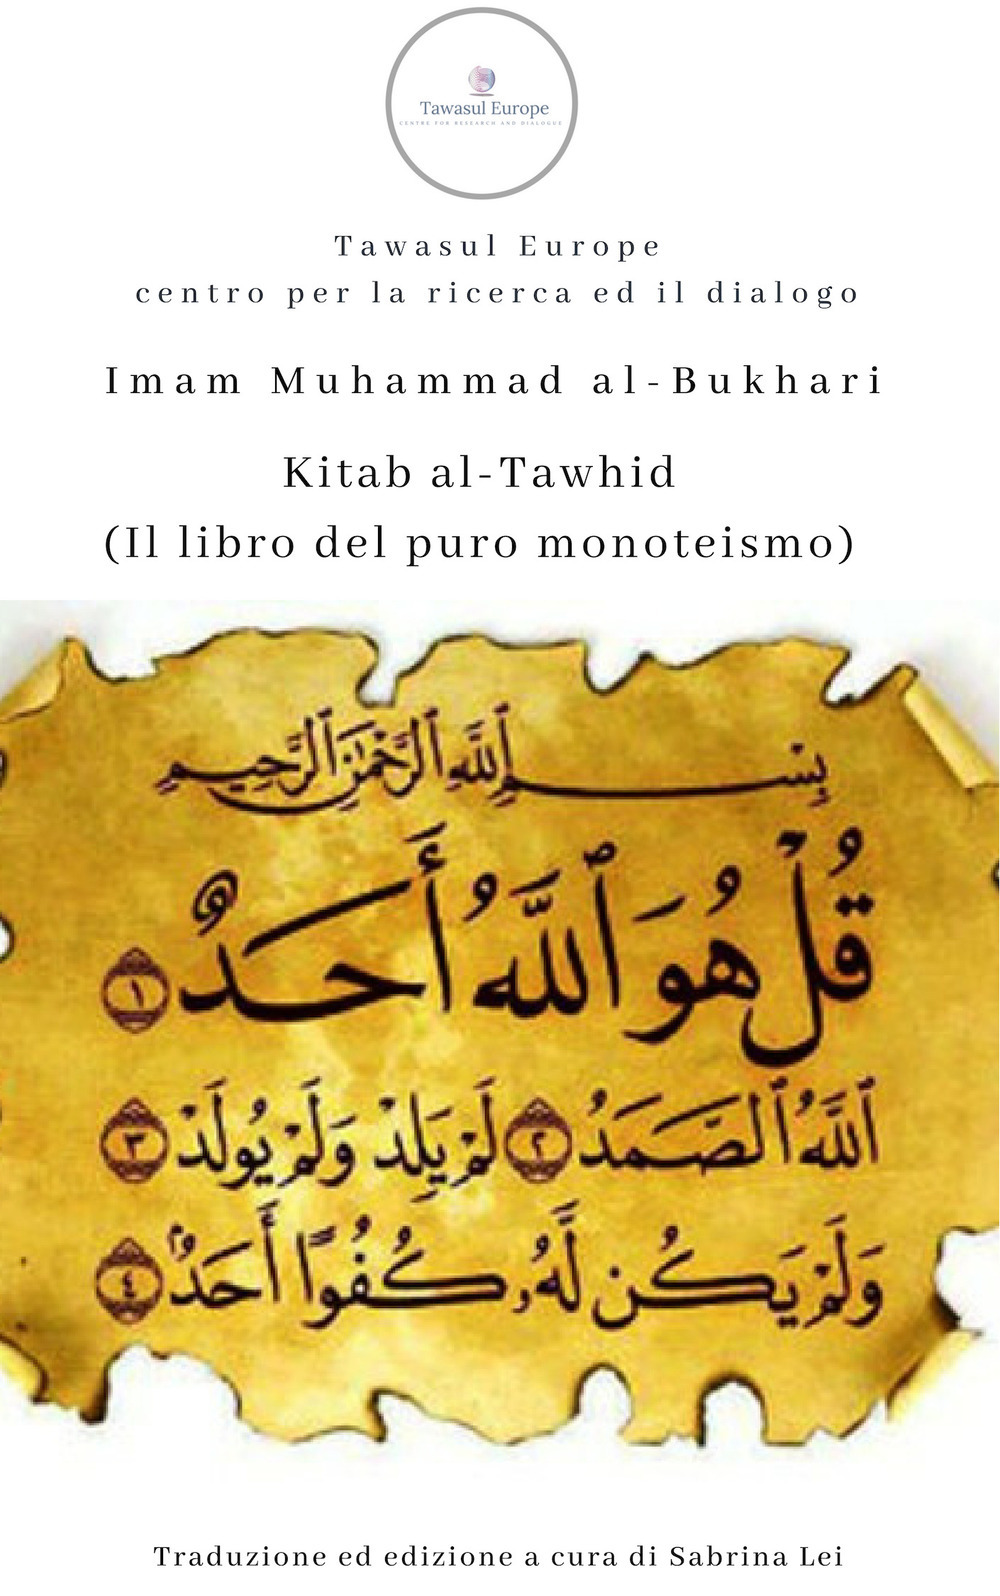 Tawasul Europe
CENTRE FOR RESEARCH AND DIALOGUE
Tawasul Europe
centro per la ricerca ed il dialogo
Imam Muhammad al-Bukhari
Kitab al-Tawhid
(Il libro del puro monoteismo)
بِسْمِ ٱللَّهِ ٱلرَّحْمَٰنِ ٱلرَّحِيمِ
قُلْ هُوَ ٱللَّهُ أَحَدٌ ١
ٱللَّهُ ٱلصَّمَدُ ٢ لَمْ يَلِدْ وَلَمْ يُولَدْ ٣
وَلَمْ يَكُن لَّهُۥ كُفُوًا أَحَدٌۢ ٤
Traduzione ed edizione a cura di Sabrina Lei